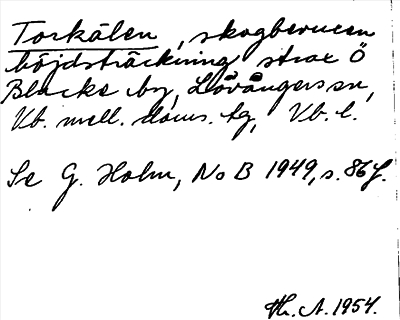 Torkålen, skogbevuxen
höjdsträckning strax Ö
Blacke by, Lövångers sn,
Vb. mell. doms. tg, Vb. l.
Se G. Holm, NoB 1949, s. 86 f.
Th. A. 1954.